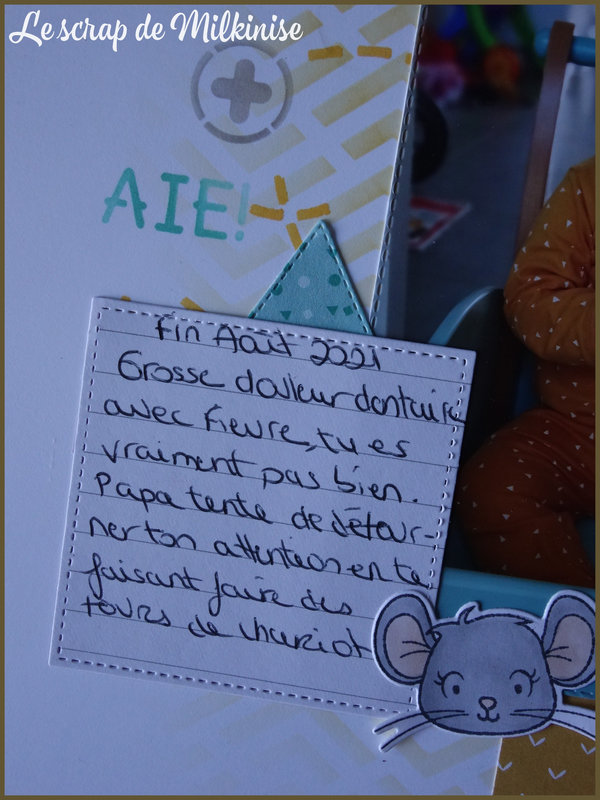 Le scrap de Milkinise
AIE!
Fin Août 2021
Grosse douleur dentaire
avec fievre, tu es
vraiment pas bien.
Papa tente de détour-
ner ton attention en te
faisant faire des
tours de chariot